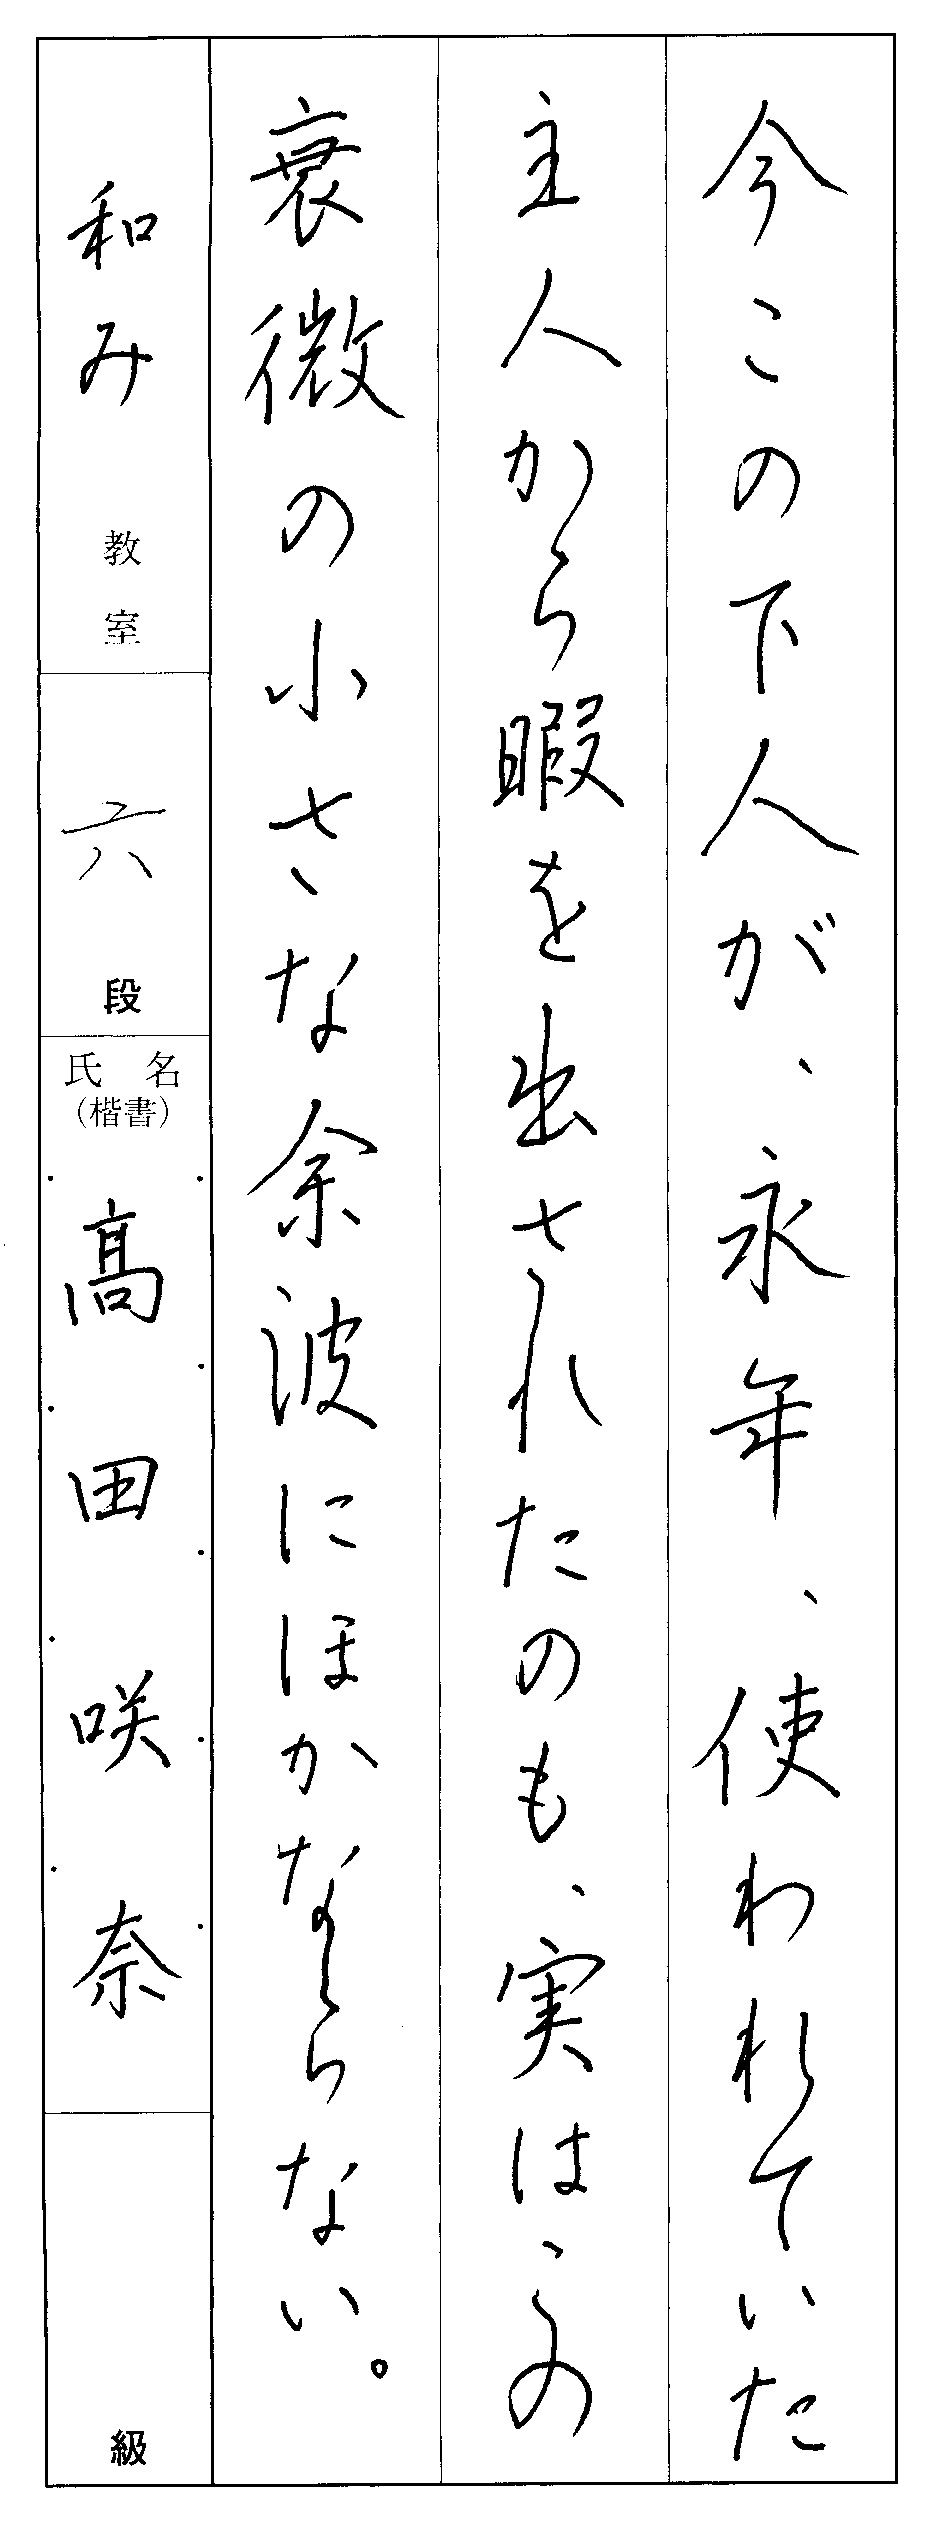 今この下人が、永年、使われていた
主人から暇を出されたのも、実はこの
衰微の小さな余波にほかならない。
和み教室
六段
氏名
(楷書)
髙田咲奈
級